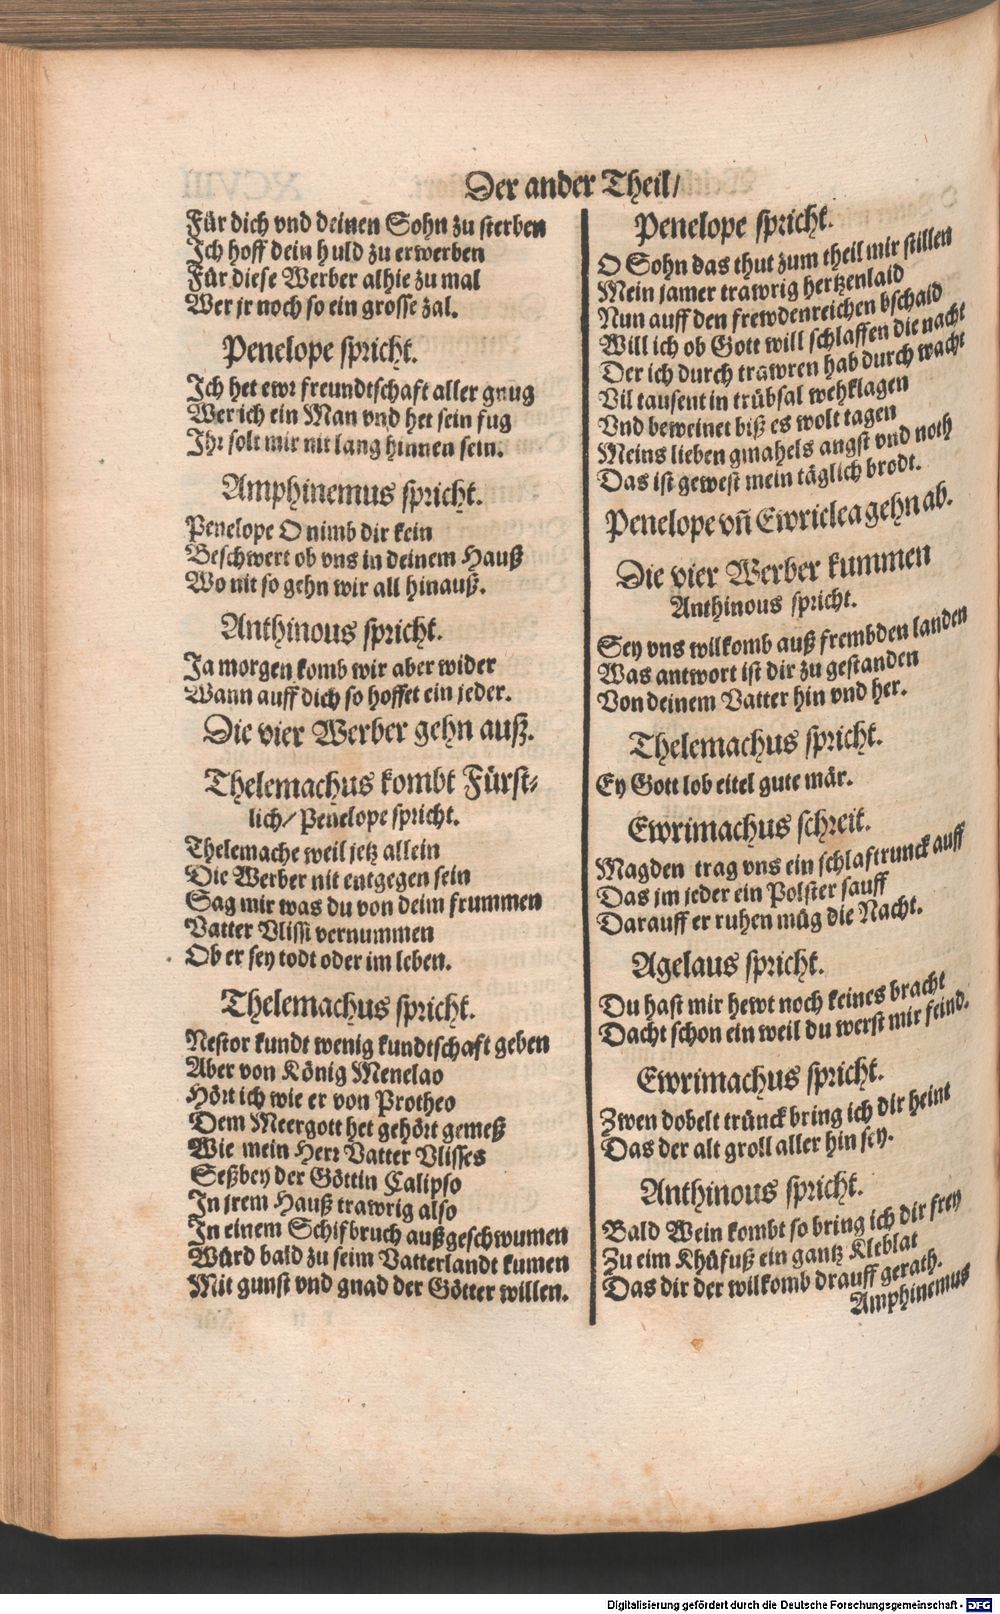 Der ander Theil/
Für dich vnd deinen Sohn zu sterben
Ich hoff dein huld zu erwerben
Für diese Werber alhie zu mal
Wer jr noch so ein grosse zal.
Penelope spricht.
Ich het ewr freundtschaft aller gnug
Wer ich ein Man vnd het sein fug
Ihr solt mir nit lang hinnen sein.
Amphinemus spricht.
Penelope O nimb dir kein
Beschwert ob vns in deinem Hauß
Wo nit so gehn wir all hinauß.
Anthinous spricht.
Ja morgen komb wir aber wider
Wann auff dich so hoffet ein jeder.
Die vier Werber gehn auß.
Thelemachus kombt Fürst-
lich/ Penelope spricht.
Thelemache weil jetz allein
Die Werber nit entgegen sein
Sag mir was du von deim frummen
Vatter Vlissi vernummen
Ob er sey todt oder im leben.
Thelemachus spricht.
Nestor kundt wenig kundtschaft geben
Aber von König Menelao
Hört ich wie er von Protheo
Dem Meergott het gehört gemeß
Wie mein Herr Vatter Vlisses
Seßbey der Göttin Calipso
In jrem Hauß trawrig also
In einem Schifbruch außgeschwumen
Würd bald zu seim Vatterlandt kumen
Mit gunst vnd gnad der Götter willen.
Penelope spricht.
O Sohn das thut zum theil mir stillen
Mein jamer trawrig hertzenlaid
Nun auff den frewdenreichen bschaid
Will ich ob Gott will schlaffen die nacht
Der ich durch trawren hab durch wacht
Vil tausent in trübsal wehklagen
Vnd beweinet biß es wolt tagen
Meins lieben gmahels angst vnd noth
Das ist gewest mein täglich brodt.
Penelope vñ Ewriclea gehn ab.
Die vier Werber kummen
Anthinous spricht.
Sey vns wilkomb auß frembden landen
Was antwort ist dir zu gestanden
Von deinem Vatter hin vnd her.
Thelemachus spricht.
Ey Gott lob eitel gute mär.
Ewrimachus schreit.
Magden trag vns ein schlaftrunck auff
Das jm jeder ein Polster sauff
Darauff er ruhen müg die Nacht.
Agelaus spricht.
Du hast mir hewt noch keines bracht
Dacht schon ein weil du werst mir feind.
Ewrimachus spricht.
Zwen dobelt trünck bring ich dir heint
Das der alt groll aller hin sey.
Anthinous spricht.
Bald Wein kombt so bring ich dir frey
Zu eim Khüfuß ein gantz Kleblat
Das dir der wilkomb drauff gerath.
Amphinemus
Digitalisierung gefördert durch die Deutsche Forschungsgemeinschaft - DFG